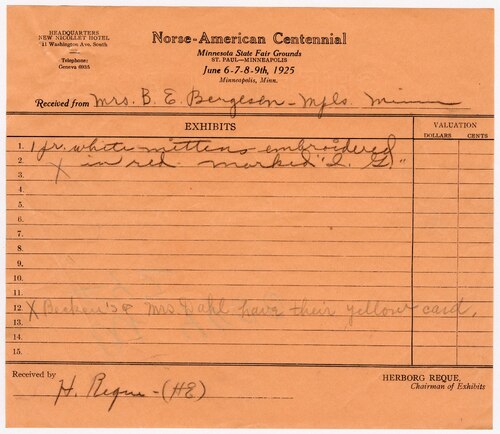 HEADQUARTERS
NEW NICOLLET HOTEL
11 Washington Ave. South
Telephone:
Geneva 6935
Norse-American Centennial
Minnesota State Fair Grounds
ST. PAUL—MINNEAPOLIS
June 6-7-8-9th, 1925
Minneapolis, Minn.
Received from Mrs. B. E. Bergesen - Mpls. Minn
EXHIBITS
VALUATION
DOLLARS CENTS
1. 1 pr. white mittens embroidered
2. X in red marked "I. G."
3.
4.
5.
6.
7.
8.
9.
10.
11.
12. X & Mrs Dahl have their yellow card.
13.
14.
15.
Received by
H. Reque - (HE)
HERBORG REQUE,
Chairman of Exhibits